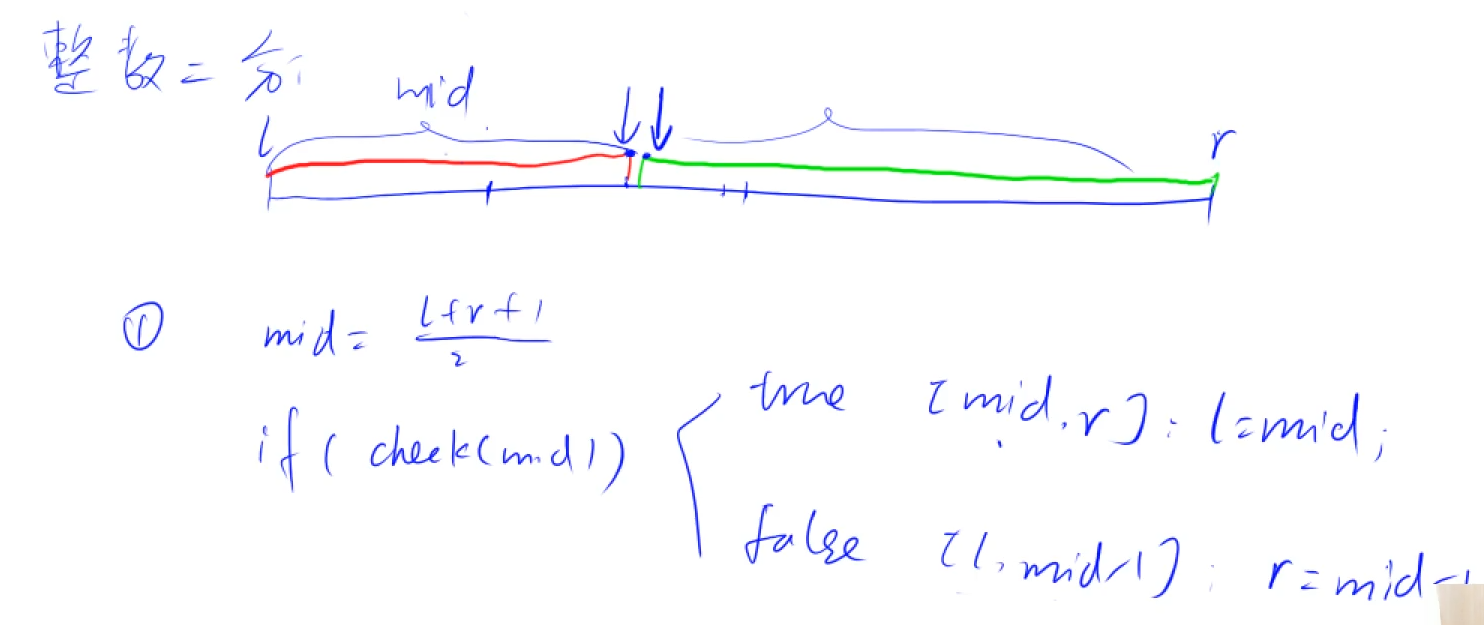 整数二分
mid
l
r
① mid = (l+r+1)/2
if( check(mid))
true [mid, r]: l=mid;
false [l, mid-1]: r=mid-1